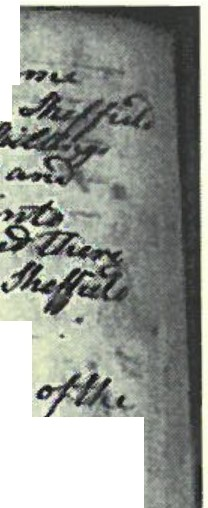 me
Sheffield
Buildings
and
into
There
Sheffield
of the